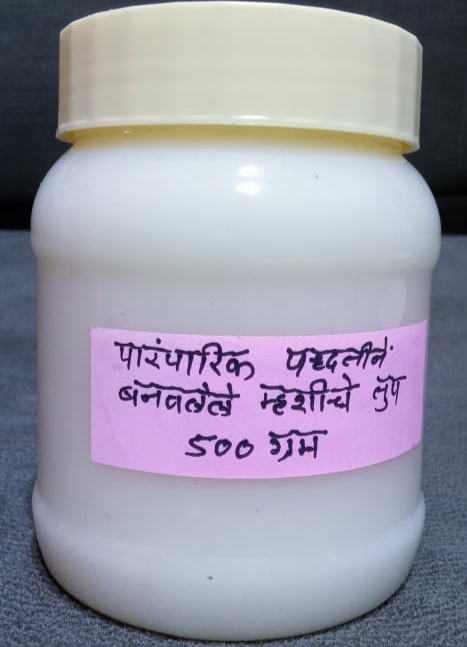 पारंपारिक पध्दतीने
बनवलेले म्हशीचे तुप
500 ग्रॅम